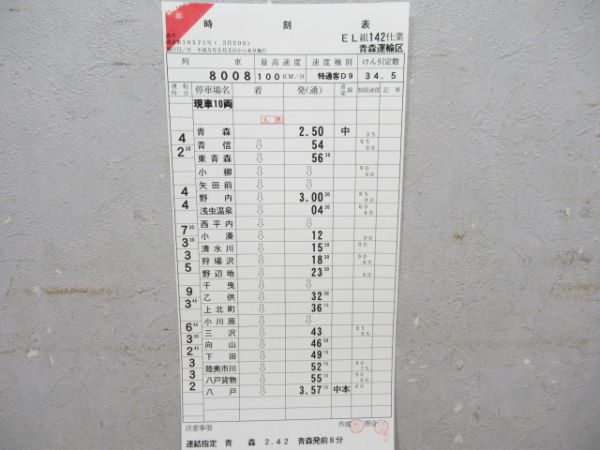 時 刻 表
EL組142仕業
青森運輸区
列 車 最高速度 速度種別 けん引定数
8008 100KM/H 特通客D9 34.5
運転時分 停車場名 着 発(通) 着発線 制限速度 記事
現車10両
入換
青 森 2.50 中 35
4 青 信 ⇩ 54 65 90
2 30 東青森 ⇩ 56 30
小 柳 ⇩ 90 90
矢田前 ⇩
4 野 内 ⇩ 3.00 30 85 90
4 浅虫温泉 ⇩ 04 30 60 60
西平内 ⇩
7 30 小 湊 ⇩ 12 90
3 30 清水川 ⇩ 15 30 90
3 狩場沢 ⇩ 18 30
5 野辺地 ⇩ 23 30
千 曳 ⇩
9 乙 供 ⇩ 32 30
3 45 上北町 ⇩ 36 15
小川原 ⇩
6 45 三 沢 ⇩ 43
3 30 向 山 ⇩ 46 30
2 45 下 田 ⇩ 49 15
3 陸奥市川 ⇩ 52 15
3 八戸貨物 ⇩ 55 15
2 八 戸 3.57 15 中本
注意事項 作成 照合
連結指定 青 森 2.42 青森発前8分